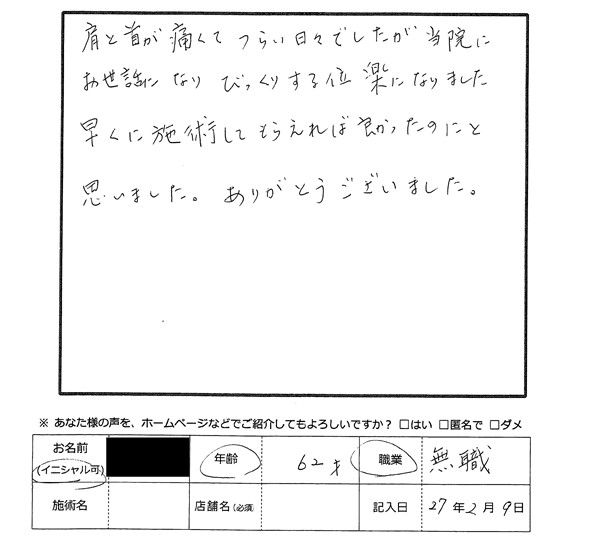 肩と首が痛くてつらい日々でしたが当院に
お世話になりびっくりする位楽になりました
早くに施術してもらえれば良かったのにと
思いました。ありがとうございました。
※ あなた様の声を、ホームページなどでご紹介してもよろしいですか？ □はい □匿名で □ダメ
お名前 (イニシャル可) 年齢 62才 職業 無職
施術名 店舗名(必須) 記入日 27年2月9日